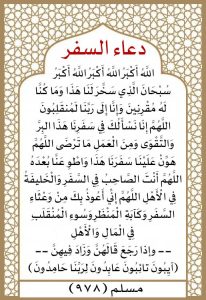 دعاء السفر
اللهُ أَكْبَرُ اللهُ أَكْبَرُ اللهُ أَكْبَرُ
سُبْحَانَ الَّذِي سَخَّرَ لَنَا هَذَا وَمَا كُنَّا
لَهُ مُقْرِنِينَ وَإِنَّا إِلَى رَبِّنَا لَمُنقَلِبُونَ
اللَّهُمَّ إِنَّا نَسْأَلُكَ فِي سَفَرِنَا هَذَا البِرَّ
وَالتَّقْوَى وَمِنَ الْعَمَلِ مَا تَرْضَى اللَّهُمَّ
هَوِّنْ عَلَيْنَا سَفَرَنَا هَذَا وَاطْوِ عَنَّا بُعْدَهُ
اللَّهُمَّ أَنْتَ الصَّاحِبُ فِي السَّفَرِ وَالْخَلِيفَةُ
فِي الْأَهْلِ اللَّهُمَّ إِنِّي أَعُوذُ بِكَ مِنْ وَعْثَاءِ
السَّفَرِ وَكَآبَةِ الْمَنْظَرِ وَسُوءِ الْمُنْقَلَبِ
فِي الْمَالِ وَالْأَهْلِ
-- وإذا رَجَعَ قَالَهُنَّ وَزَادَ فِيهِنَّ --
(آيِبُونَ تَائِبُونَ عَابِدُونَ لِرَبِّنَا حَامِدُونَ)
مسلم (٩٧٨)